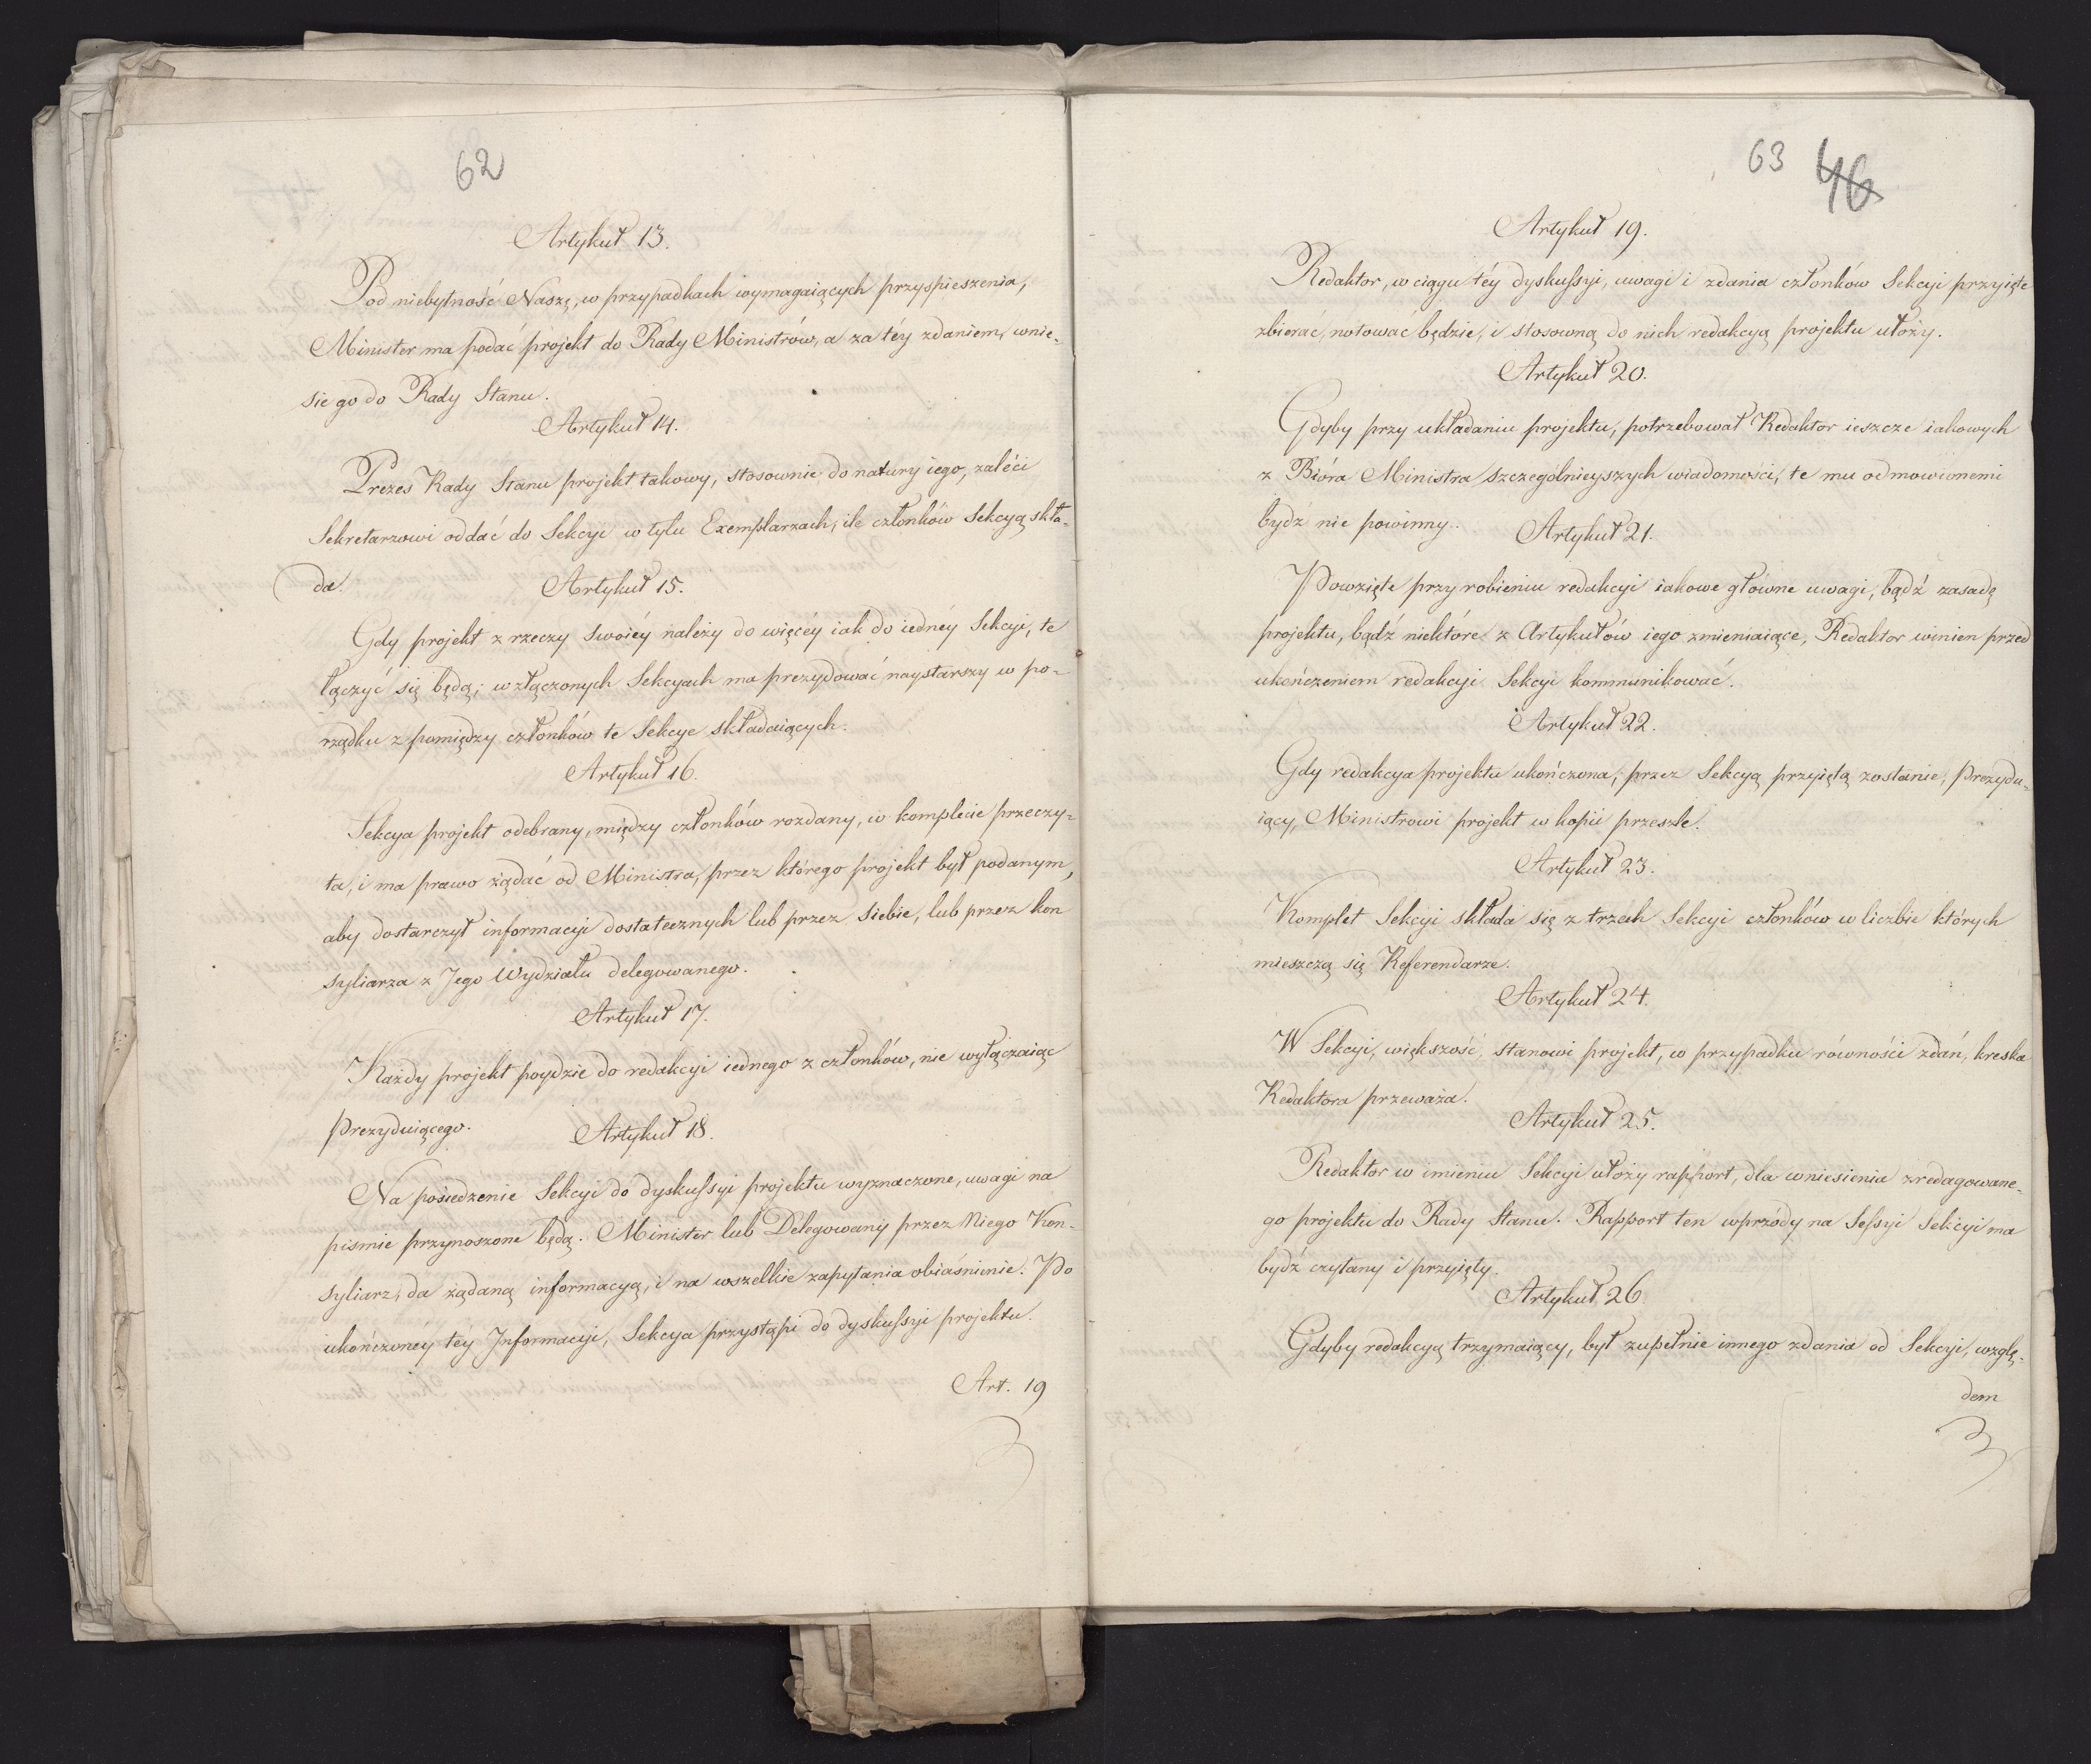 62
Artykuł 13.
Pod niebytność Naszę, w przypadkach wymagaiących przyspieszenia,
Minister ma podać projekt do Rady Ministrów, a za téy zdaniem, wnie-
sie go do Rady Stanu.
Artykuł 14.
Prezes Rady Stanu projekt takowy, stosownie do natury iego, zaléci
Sekretarzowi oddać do Sekcyi w tylu Exemplarzach, ile członków Sekcyą skła-
da.
Artykuł 15.
Gdy projekt z rzeczy swoiéy należy do więcéy iak do iednéy Sekcyi, te
łączyć się będą; w złączonych Sekcyach ma prezydować naystarszy w po-
rządku z pomiędzy członków te Sekcye składaiących.
Artykuł 16.
Sekcya projekt odebrany, między członków rozdany, w komplecie przeczy-
ta, i ma prawo żądać od Ministra, przez którego projekt był podanym,
aby dostarczył informacyi dostatecznych lub przez siebie, lub przez kon
syliarza z Jego Wydziału delegowanego.
Artykuł 17.
Każdy projekt poydzie do redakcyi iednego z członków, nie wyłączaiąc
Prezyduiącego.
Artykuł 18.
Na posiedzenie Sekcyi do dyskussyi projektu wyznaczone, uwagi na
pismie przynoszone będą. Minister lub Delegowany przez Niego Kon-
syliarz, da żądaną informacyą, i na wszelkie zapytania obiaśnienie. Po
ukończonéy téy Informacyi, Sekcya przystąpi do dyskussyi projektu.
Art. 19
63 46
Artykuł 19.
Redaktor, w ciągu téy dyskussyi, uwagi i zdania członków Sekcyi przyięte
zbierać, notować będzie, i stosowną do nich redakcyą projektu ułoży.
Artykuł 20.
Gdyby przy układaniu projektu, potrzebował Redaktor ieszcze iakowych
z Bióra Ministra szczególnieyszych wiadomości, te mu odmowionemi
bydź nie powinny.
Artykuł 21.
Powzięte przy robieniu redakcyi iakowe główne uwagi, bądź zasadę
projektu, bądź niektóre z Artykułów iego zmieniaiące, Redaktor winien przed
ukończeniem redakcyi Sekcyi kommunikować.
Artykuł 22.
Gdy redakcya projektu ukończona, przez Sekcyą przyiętą zostanie, Prezydu-
iący, Ministrowi projekt w kopii przeszle.
Artykuł 23.
Komplet Sekcyi składa się z trzech Sekcyi członków w liczbie których
mieszczą się Referendarze.
Artykuł 24.
W Sekcyi, większość, stanowi projekt, w przypadku równości zdań, kreska
Redaktora przeważa.
Artykuł 25.
Redaktor w imieniu Sekcyi ułoży rapport, dla wniesienia zredagowane-
go projektu do Rady Stanu. Rapport ten wprzódy na Sessyi Sekcyi ma
bydź czytany i przyięty.
Artykuł 26
Gdyby redakcyą trzymaiący, był zupełnie innego zdania od Sekcyi, wzglę-
dem